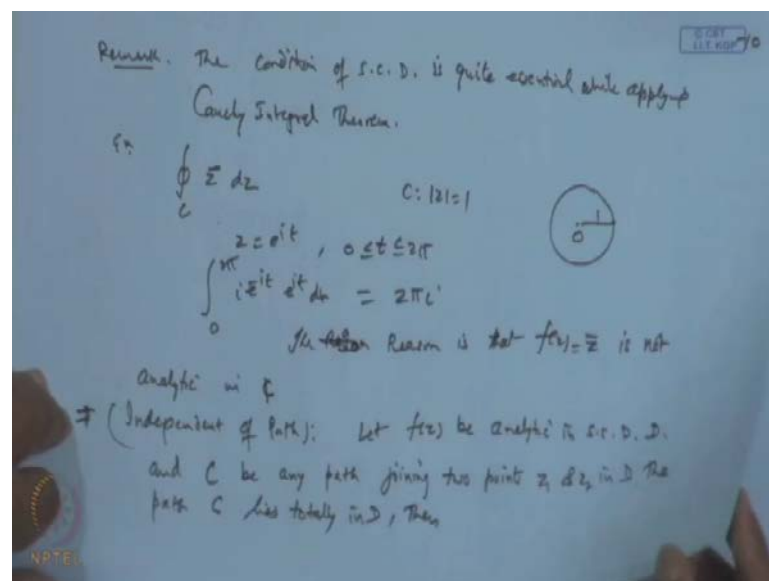 © CET
I.I.T. KGP
Remark. The condition of S.C.D. is quite essential while applying
Cauchy Integral Theorem.
Ex.
∮ z̄ dz
C
C: |z|=1
1
0
z = e^{it}, 0 ≤ t ≤ 2π
∫_0^{2π} i e^{-it} e^{it} dt = 2πi
The Reason is that f(z)=z̄ is not
analytic in C
(Independent of Path): Let f(z) be analytic in S.C.D. D.
and C be any path joining two points z₁ & z₂ in D The
path C lies totally in D, Then
NPTEL